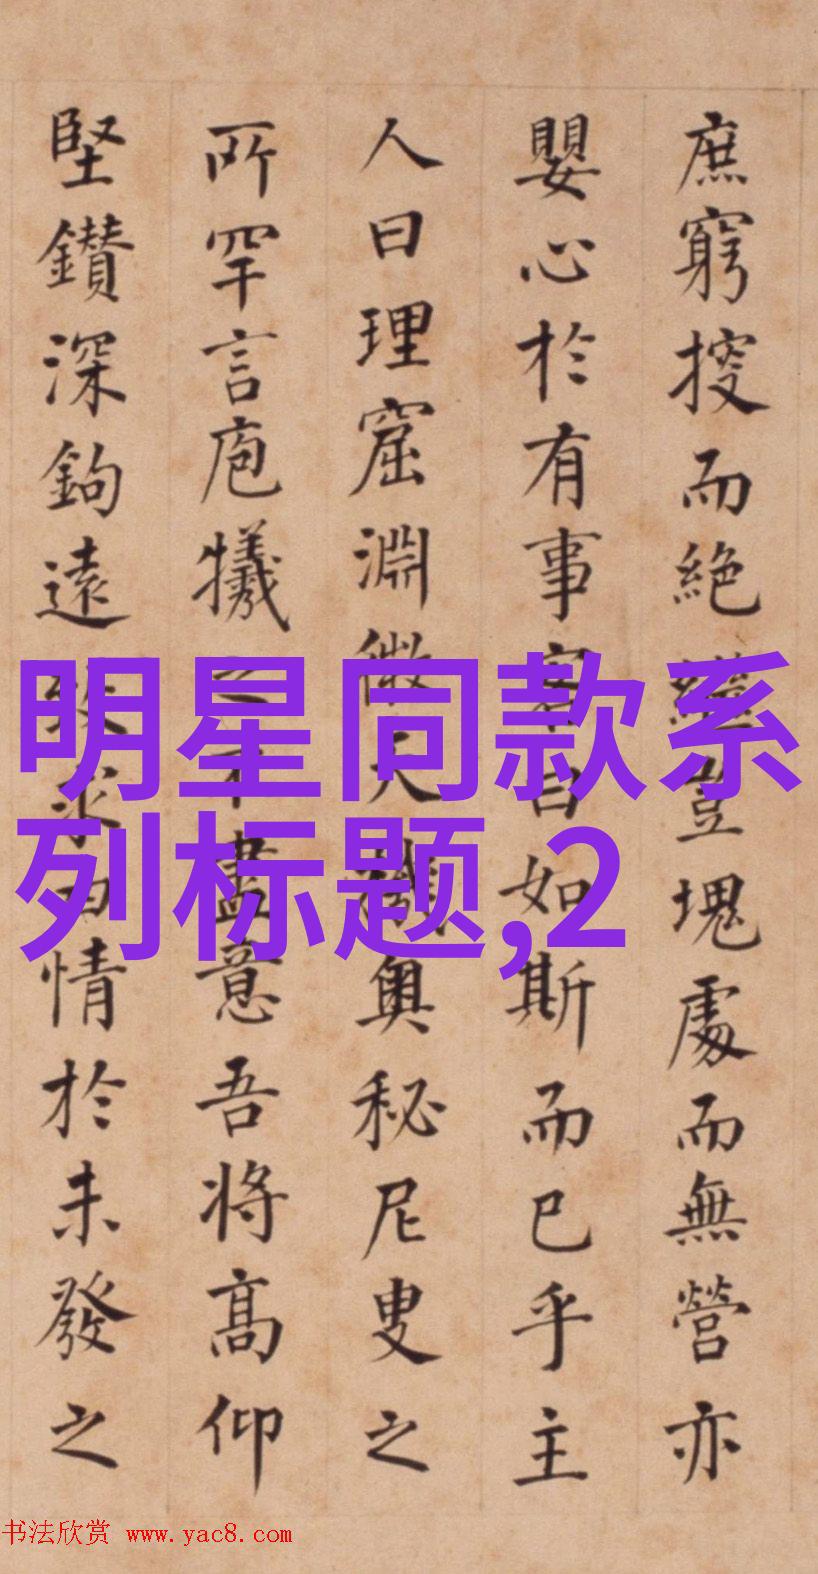 庶窮揬而絶繼豈塊處而無營亦
嬰心於有事窘白如斯而已乎主
人曰理窟淵微天機奧秘尼叟之
所罕言庖犧之不盡意吾將高仰
堅鑽深鈎遠致求中情於未發之
明星同款系
列标题,2
书法欣赏 www.yac8.com